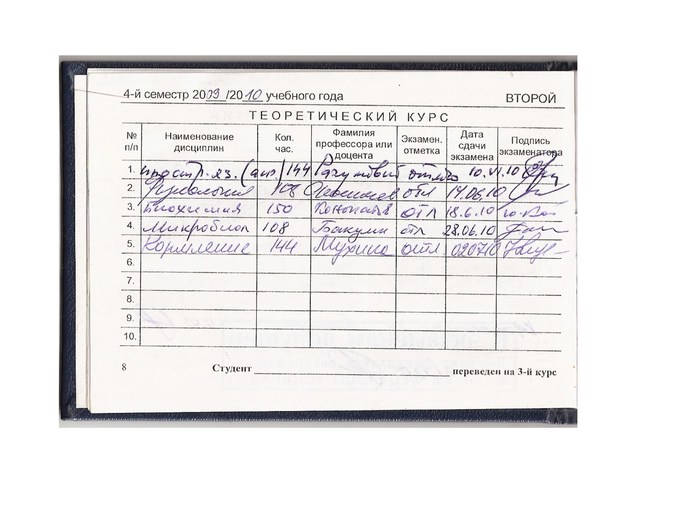 4-й семестр 2009/2010 учебного года ВТОРОЙ
ТЕОРЕТИЧЕСКИЙ КУРС
№ п/п Наименование дисциплин Кол. час. Фамилия профессора или доцента Экзамен. отметка Дата сдачи экзамена Подпись экзаменатора
1. иностр. яз. (анг.) 144 отл 10.VI.10
2. 108 отл 14.06.10
3. Биохимия 150 отл 18.6.10
4. Микробиол 108 Бакулин отл 28.06.10
5. Кормление 144 Мухина отл 020710
6.
7.
8.
9.
10.
8 Студент переведен на 3-й курс